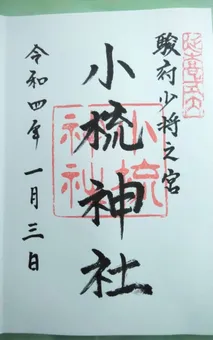 駿府少将之宮
小梳神社
令和四年一月三日
小梳
神社